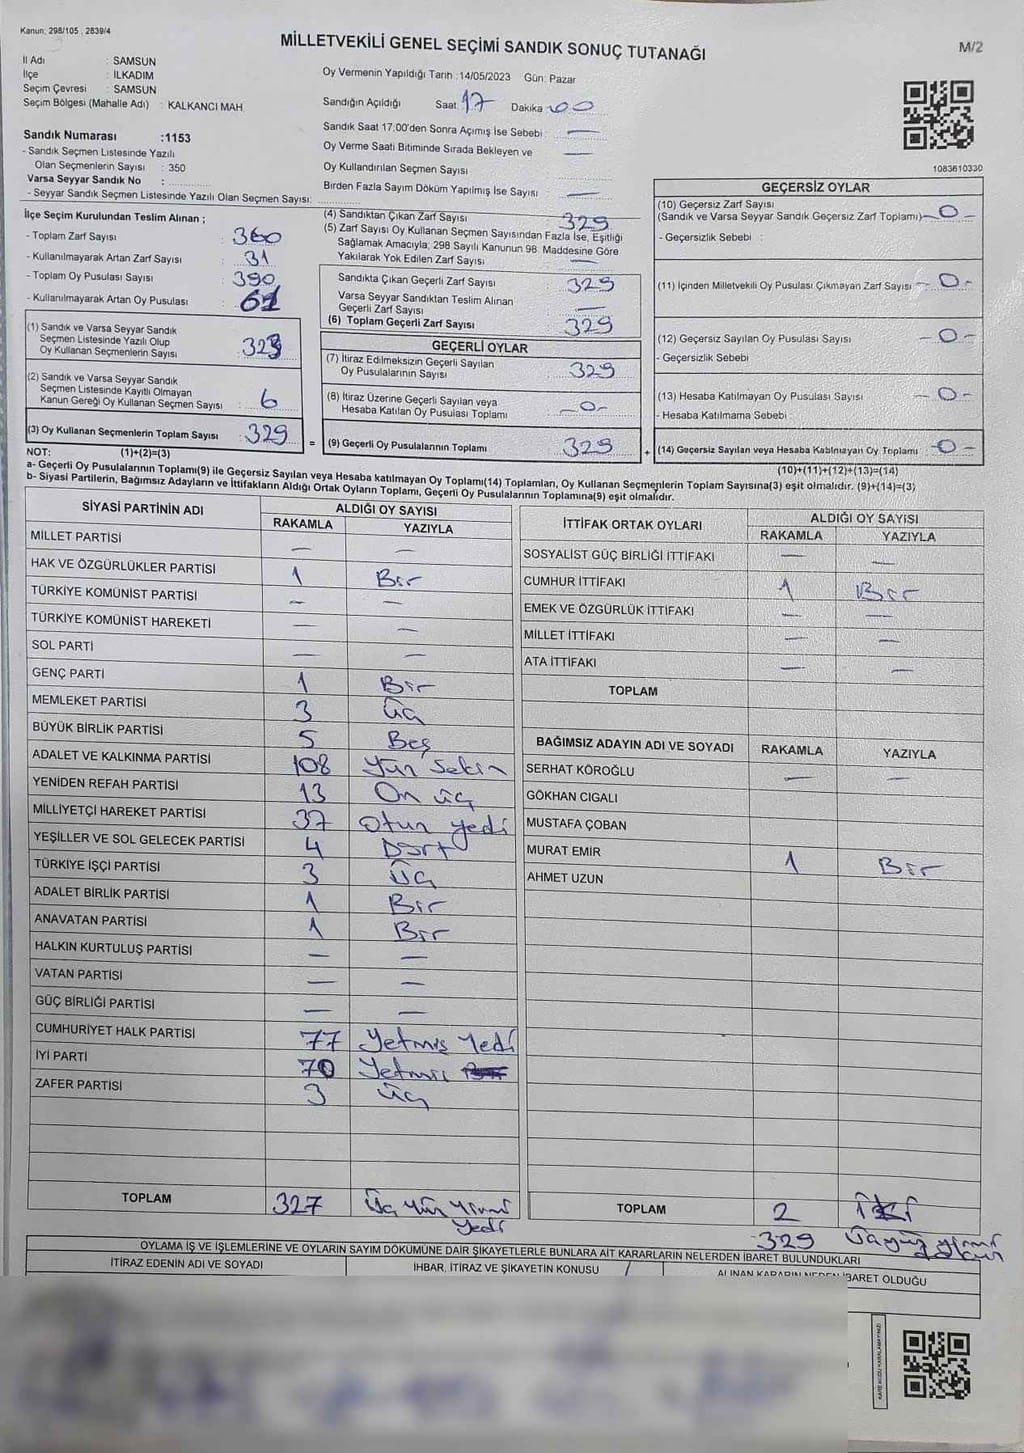 Kanun; 298/105 , 2839/4
MİLLETVEKİLİ GENEL SEÇİMİ SANDIK SONUÇ TUTANAĞI
M/2
İl Adı : SAMSUN
İlçe : İLKADIM
Seçim Çevresi : SAMSUN
Seçim Bölgesi (Mahalle Adı) : KALKANCI MAH.
Sandık Numarası :1153
- Sandık Seçmen Listesinde Yazılı
Olan Seçmenlerin Sayısı : 350
Varsa Seyyar Sandık No :
- Seyyar Sandık Seçmen Listesinde Yazılı Olan Seçmen Sayısı:
Oy Vermenin Yapıldığı Tarih :14/05/2023 Gün: Pazar
Sandığın Açıldığı Saat 17 Dakika 00
Sandık Saat 17:00'den Sonra Açımış İse Sebebi : —
Oy Verme Saati Bitiminde Sırada Bekleyen ve —
Oy Kullandırılan Seçmen Sayısı
Birden Fazla Sayım Döküm Yapılmış İse Sayısı —
1083610330
İlçe Seçim Kurulundan Teslim Alınan ;
- Toplam Zarf Sayısı : 360
- Kullanılmayarak Artan Zarf Sayısı : 31
- Toplam Oy Pusulası Sayısı : 390
- Kullanılmayarak Artan Oy Pusulası : 61
(1) Sandık ve Varsa Seyyar Sandık
Seçmen Listesinde Yazılı Olup
Oy Kullanan Seçmenlerin Sayısı : 323
(2) Sandık ve Varsa Seyyar Sandık
Seçmen Listesinde Kayıtlı Olmayan
Kanun Gereği Oy Kullanan Seçmen Sayısı : 6
(3) Oy Kullanan Seçmenlerin Toplam Sayısı : 329
(4) Sandıktan Çıkan Zarf Sayısı : 329
(5) Zarf Sayısı Oy Kullanan Seçmen Sayısından Fazla İse, Eşitliği
Sağlamak Amacıyla; 298 Sayılı Kanunun 98. Maddesine Göre
Yakılarak Yok Edilen Zarf Sayısı : —
Sandıkta Çıkan Geçerli Zarf Sayısı : 329
Varsa Seyyar Sandıktan Teslim Alınan
Geçerli Zarf Sayısı : —
(6) Toplam Geçerli Zarf Sayısı : 329
GEÇERLİ OYLAR
(7) İtiraz Edilmeksizin Geçerli Sayılan
Oy Pusulalarının Sayısı : 329
(8) İtiraz Üzerine Geçerli Sayılan veya
Hesaba Katılan Oy Pusulası Toplamı : -0-
= (9) Geçerli Oy Pusulalarının Toplamı : 329
GEÇERSİZ OYLAR
(10) Geçersiz Zarf Sayısı
(Sandık ve Varsa Seyyar Sandık Geçersiz Zarf Toplamı) -0-
- Geçersizlik Sebebi :
(11) İçinden Milletvekili Oy Pusulası Çıkmayan Zarf Sayısı -0-
(12) Geçersiz Sayılan Oy Pusulası Sayısı -0-
- Geçersizlik Sebebi
(13) Hesaba Katılmayan Oy Pusulası Sayısı -0-
- Hesaba Katılmama Sebebi :
+ (14) Geçersiz Sayılan veya Hesaba Katılmayan Oy Toplamı -0-
NOT: (1)+(2)=(3)
(10)+(11)+(12)+(13)=(14)
a- Geçerli Oy Pusulalarının Toplamı(9) ile Geçersiz Sayılan veya Hesaba katılmayan Oy Toplamı(14) Toplamları, Oy Kullanan Seçmenlerin Toplam Sayısına(3) eşit olmalıdır. (9)+(14)=(3)
b- Siyasi Partilerin, Bağımsız Adayların ve İttifakların Aldığı Ortak Oyların Toplamı, Geçerli Oy Pusulalarının Toplamına(9) eşit olmalıdır.
SİYASİ PARTİNİN ADI ALDIĞI OY SAYISI
RAKAMLA YAZIYLA
MİLLET PARTİSİ — —
HAK VE ÖZGÜRLÜKLER PARTİSİ 1 Bir
TÜRKİYE KOMÜNİST PARTİSİ — —
TÜRKİYE KOMÜNİST HAREKETİ — —
SOL PARTİ — —
GENÇ PARTİ 1 Bir
MEMLEKET PARTİSİ 3 Üç
BÜYÜK BİRLİK PARTİSİ 5 Beş
ADALET VE KALKINMA PARTİSİ 108 Yüz Sekiz
YENİDEN REFAH PARTİSİ 13 On üç
MİLLİYETÇİ HAREKET PARTİSİ 37 Otuz yedi
YEŞİLLER VE SOL GELECEK PARTİSİ 4 Dört
TÜRKİYE İŞÇİ PARTİSİ 3 Üç
ADALET BİRLİK PARTİSİ 1 Bir
ANAVATAN PARTİSİ 1 Bir
HALKIN KURTULUŞ PARTİSİ — —
VATAN PARTİSİ — —
GÜÇ BİRLİĞİ PARTİSİ — —
CUMHURİYET HALK PARTİSİ 77 Yetmiş Yedi
İYİ PARTİ 70 Yetmiş
ZAFER PARTİSİ 3 Üç
TOPLAM 327 Üç yüz yirmi
yedi
İTTİFAK ORTAK OYLARI ALDIĞI OY SAYISI
RAKAMLA YAZIYLA
SOSYALİST GÜÇ BİRLİĞİ İTTİFAKI — —
CUMHUR İTTİFAKI 1 Bir
EMEK VE ÖZGÜRLÜK İTTİFAKI — —
MİLLET İTTİFAKI — —
ATA İTTİFAKI — —
TOPLAM
BAĞIMSIZ ADAYIN ADI VE SOYADI RAKAMLA YAZIYLA
SERHAT KÖROĞLU — —
GÖKHAN CIGALI
MUSTAFA ÇOBAN
MURAT EMİR 1 Bir
AHMET UZUN
TOPLAM 2 İki
329 Üçyüz yirmi
OYLAMA İŞ VE İŞLEMLERİNE VE OYLARIN SAYIM DÖKÜMÜNE DAİR ŞİKAYETLERLE BUNLARA AİT KARARLARIN NELERDEN İBARET BULUNDUKLARI
İTİRAZ EDENİN ADI VE SOYADI İHBAR, İTİRAZ VE ŞİKAYETİN KONUSU ALINAN KARARIN NEDEN İBARET OLDUĞU
KARE KODU KARALAMAYINIZ!